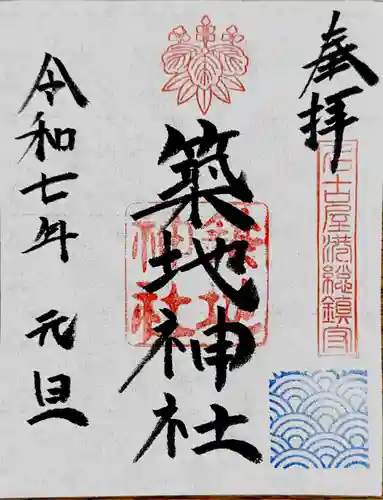 奉拝
名古屋港総鎮守
築地神社
築地神社
令和七年 元旦